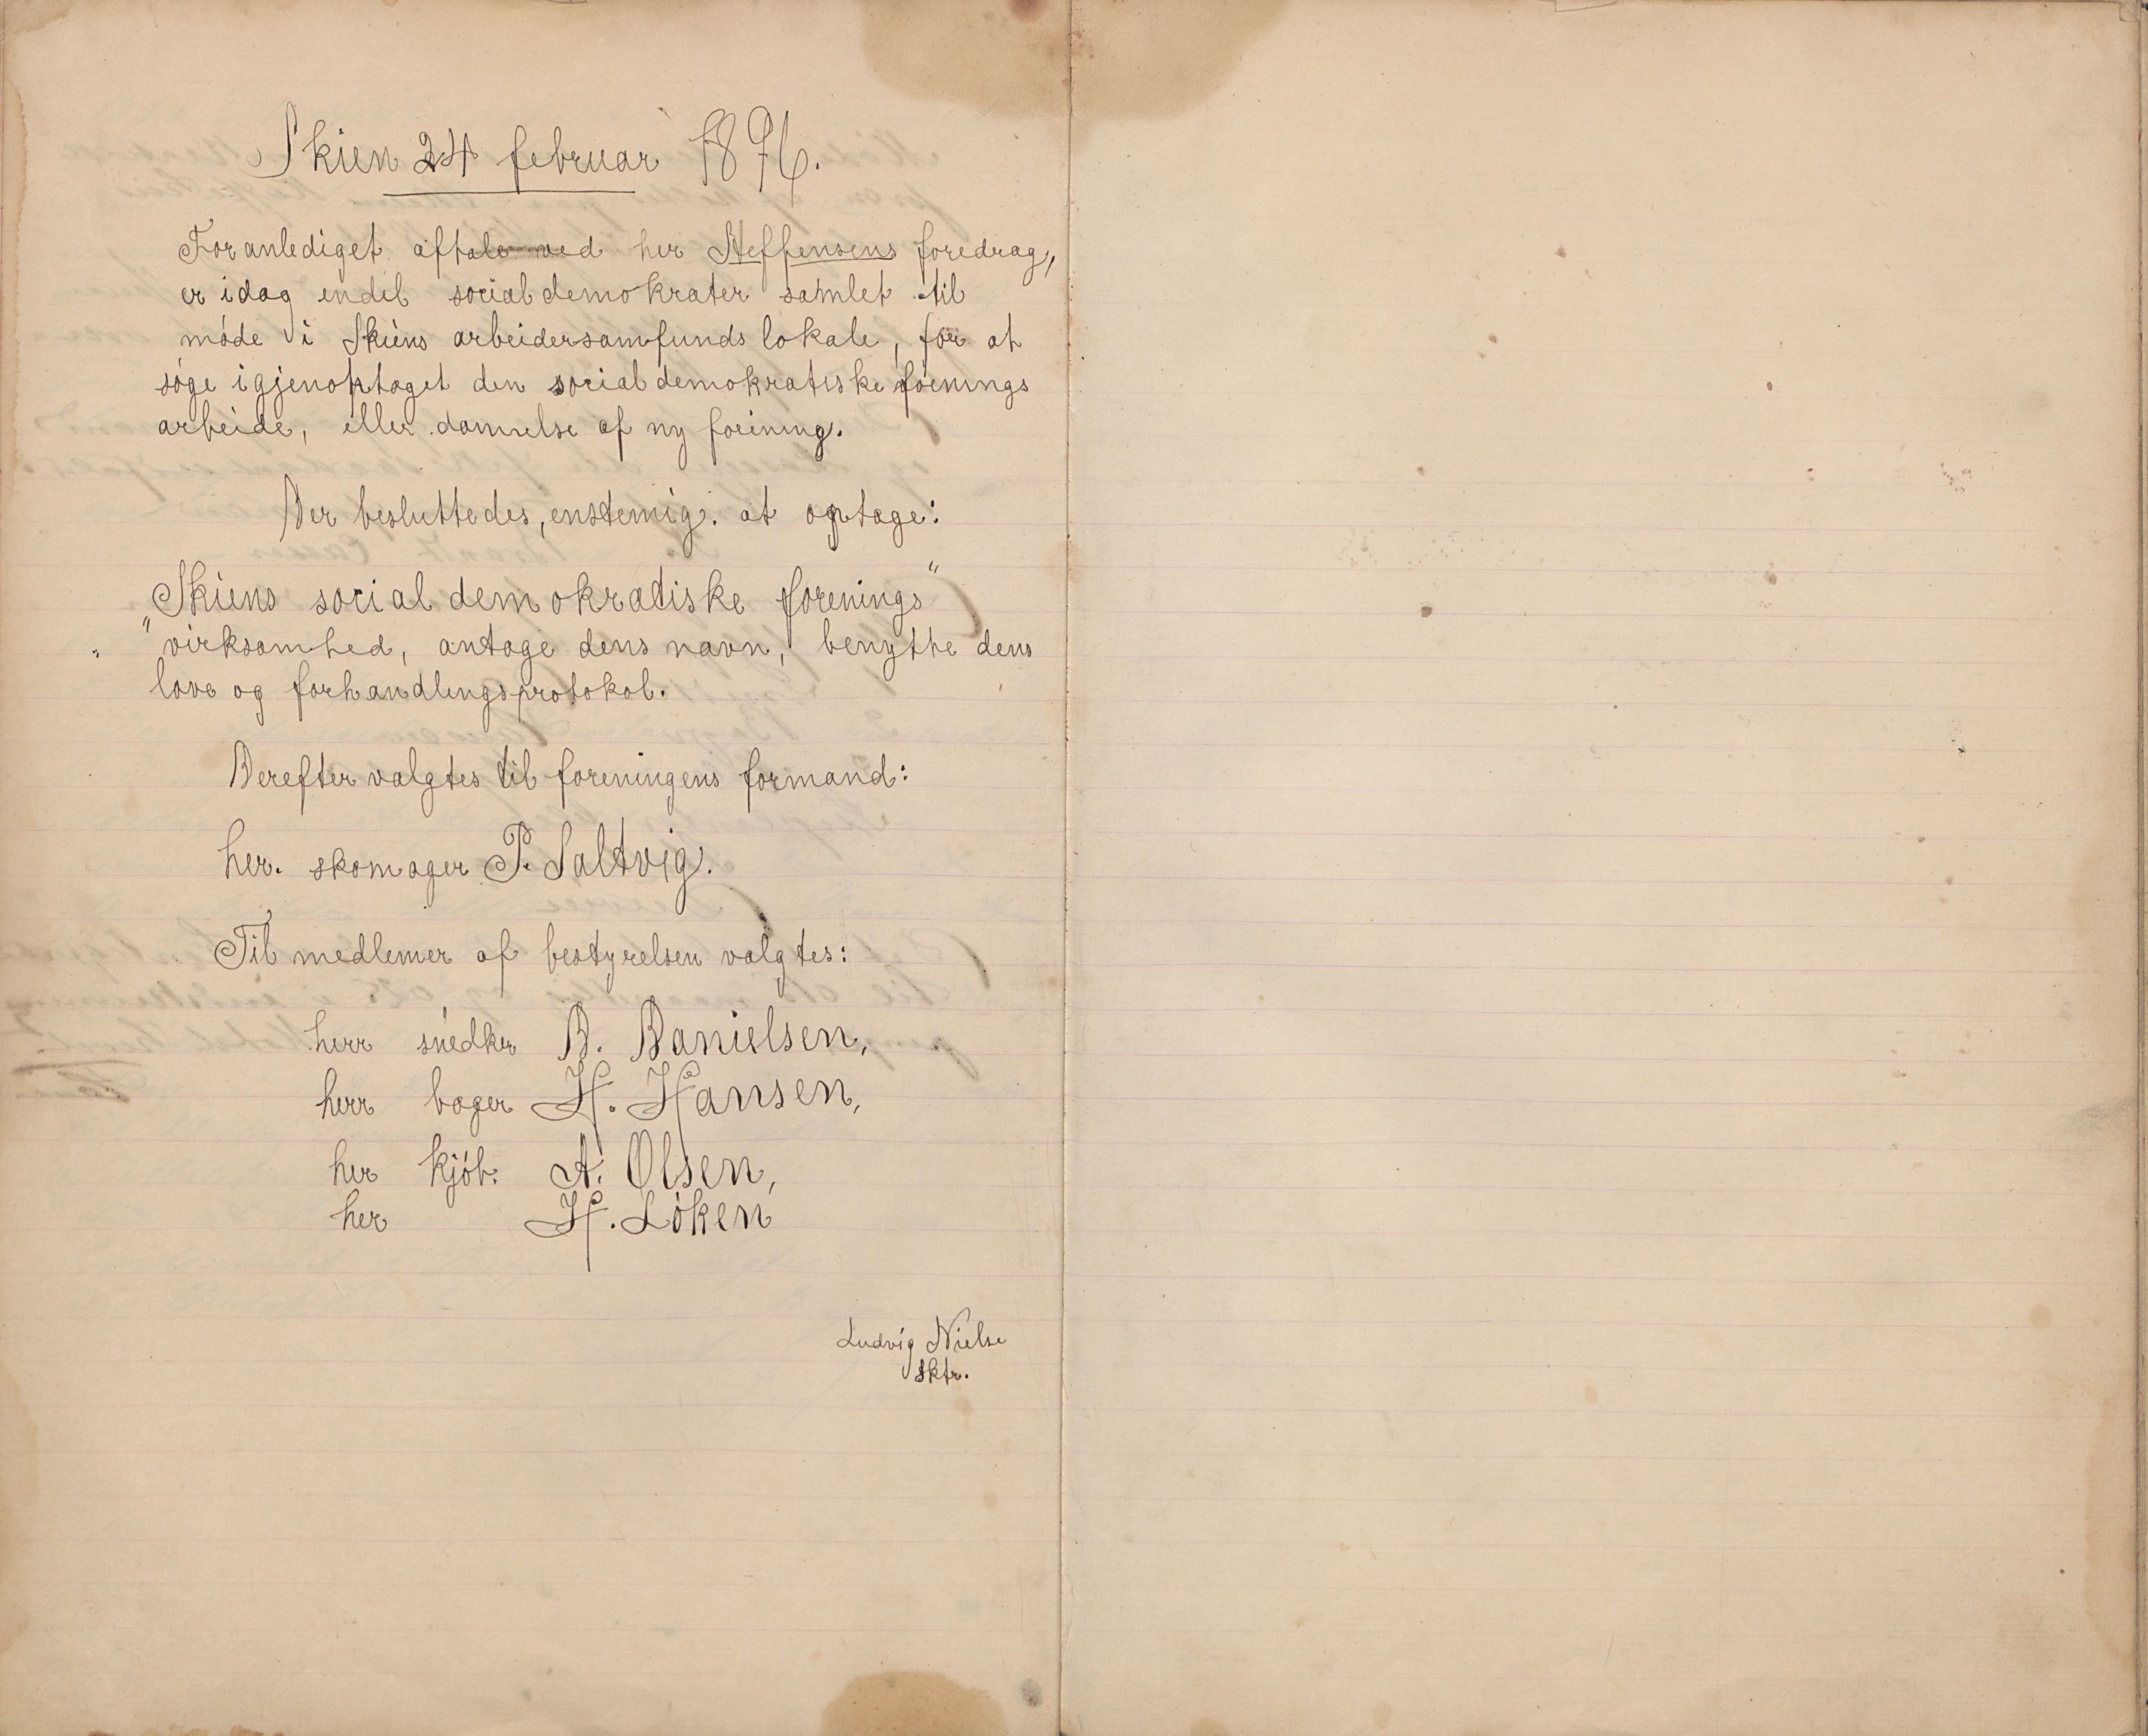 Skien 24 februar 1896.
Foranlediget aftale ved her Steffensens foredrag,
er idag endel socialdemokrater samlet til
møde i Skiens arbeidersamfunds lokale, for at
søge igjenoptaget den socialdemokratiske foenings
arbeide, eller dannelse af ny foening.
Der besluttedes, enstemig. at optage:
„Skiens socialdemokratiske forenings"
virksomhed, antage dens navn, benytte dens
love og forhandlingsprotokol.
Derefter valgtes til foreningens formand:
her. skomager P. Saltvig.
Til medlemer af bestyrelsen valgtes:
herr snedker D. Danielsen,
herr bager H. Hansen,
her kjøb. A. Olsen,
her H. Løken
Ludvig Nielse
sktr.